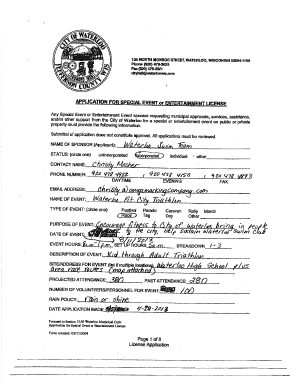 CITY OF WATERLOO
JEFFERSON COUNTY, WIS
136 NORTH MONROE STREET, WATERLOO, WISCONSIN 53594-1198
Phone (920) 478-3025
Fax (920) 478-2021
cityhall@waterloowi.com
APPLICATION FOR SPECIAL EVENT or ENTERTAINMENT LICENSE
Any Special Event or Entertainment Event sponsor requesting municipal approvals, services, assistance,
and/or other support from the City of Waterloo for a special or entertainment event on public or private
property must provide the following information.
Submittal of application does not constitute approval. All applications must be reviewed.
NAME OF SPONSOR (Applicant): Waterloo Swim Team
STATUS: (circle one) unincorporated incorporated individual other
CONTACT NAME: Christy Mosher
PHONE NUMBER
DAYTIME EVENING FAX
EMAIL ADDRESS:
NAME OF EVENT: Waterloo Fit City Triathlon
TYPE OF EVENT: (circle one) Festival Parade Caravan Rally March
Race Tag Day Other
PURPOSE OF EVENT: Encourage fitness to City of Waterloo bring in people
DATE OF EVENT: 8/11/2013 the city help sustain Waterloo Swim Club
EVENT HOURS: SET UP HOURS 5a.m. BREAKDOWN 1-3
DESCRIPTION OF EVENT: Kid through Adult Triathlon
SITE/ADDRESS FOR EVENT (list if multiple locations): Waterloo High School plus
area road routes (map attached)
PROJECTED ATTENDANCE: 300 PAST ATTENDANCE: 280
NUMBER OF VOLUNTEERS/PERSONNEL FOR EVENT 100
RAIN POLICY: rain or shine
DATE APPLICATION MADE 4-30-2013
Pursuant to Section Waterloo Municipal Code
Application for Special Event or Entertainment License
Page 1 of 8
License Application